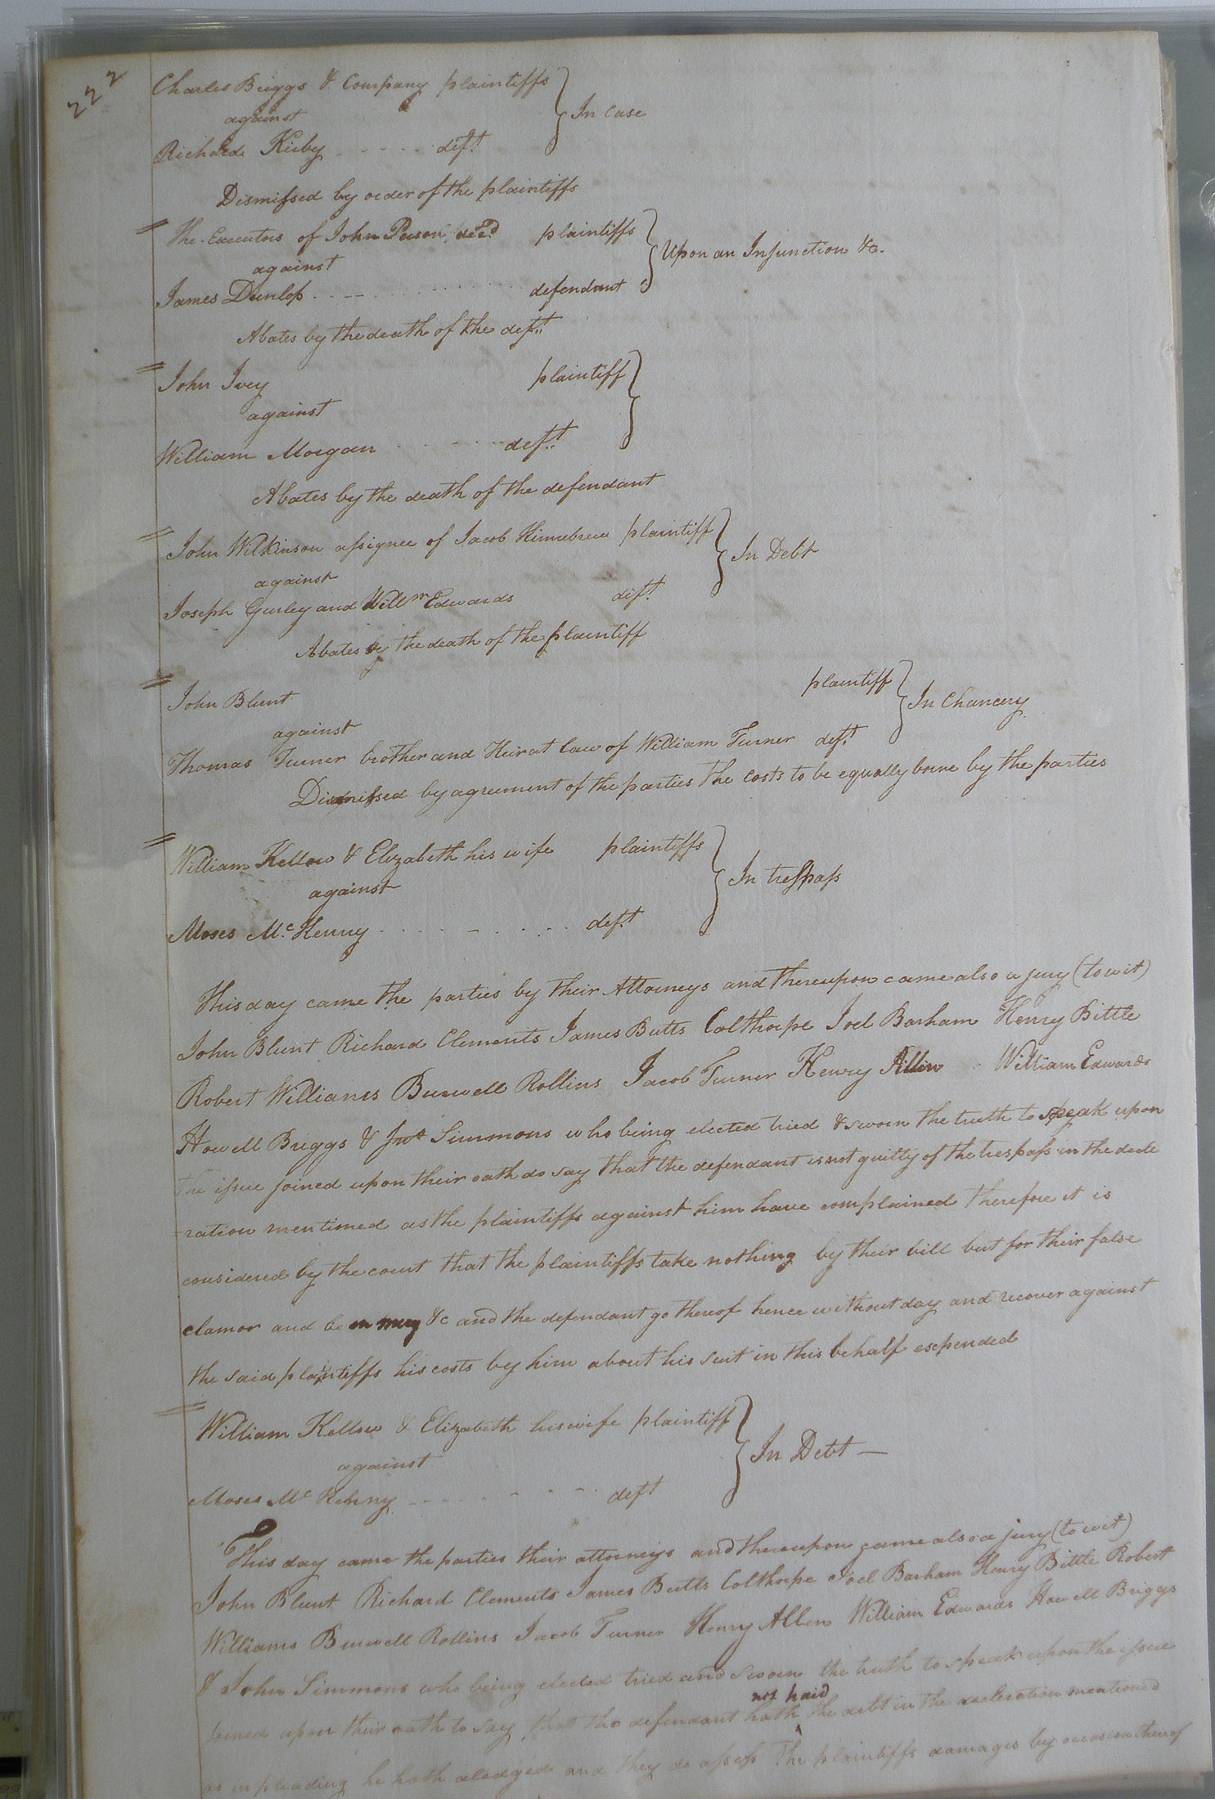 222
Charles Briggs & Company plaintiffs
against
In Case
Richard Kirby deft
Dismissed by order of the plaintiffs
The Executors of John Person decd plaintiffs
against
Upon an Injunction &c.
James Dunlop defendant
Abates by the death of the deft
John Ivey plaintiff
against
William Morgan deft
Abates by the death of the defendant
John Wilkinson assignee of Jacob plaintiff
against
In Debt
Joseph Gurley and Willm Edwards deft
Abates by the death of the plaintiff
John Blunt plaintiff
against
In Chancery
Thomas Turner brother and Heir at law of William Turner deft
Dismissed by agreement of the parties the costs to be equally borne by the parties
William Kellow & Elizabeth his wife plaintiffs
against
In trespass
Moses McHenny deft
This day came the parties by their Attorneys and thereupon came also a jury (to wit)
John Blunt Richard Clements James Butts Colthorpe Joel Barham Henry Bittle
Robert Williams Burwell Rollins Jacob Turner Henry Allen William Edwards
Howell Briggs & Jno Simmons who being elected tried & sworn the truth to speak upon
the issue joined upon their oath do say that the defendant is not guilty of the trespass in the decla
-ration mentioned as the plaintiffs against him have complained therefore it is
considered by the court that the plaintiffs take nothing by their bill but for their false
clamor and be in mercy &c and the defendant go thereof hence without day and recover against
the said plaintiffs his costs by him about his suit in this behalf expended
William Kellow & Elizabeth his wife plaintiff
against
In Debt —
Moses Mc deft
This day came the parties their attorneys and thereupon came also a jury (to wit)
John Blunt Richard Clements James Butts Colthorpe Joel Barham Henry Bittle Robert
Williams Burwell Rollins Jacob Turner Henry Allen William Edwards Howell Briggs
& John Simmons who being elected tried and sworn the truth to speak upon the issue
joined upon their oath to say that the defendant hath not paid the debt in the declaration mentioned
as in pleading he hath aledged and they do assess the plaintiffs damages by occasion thereof